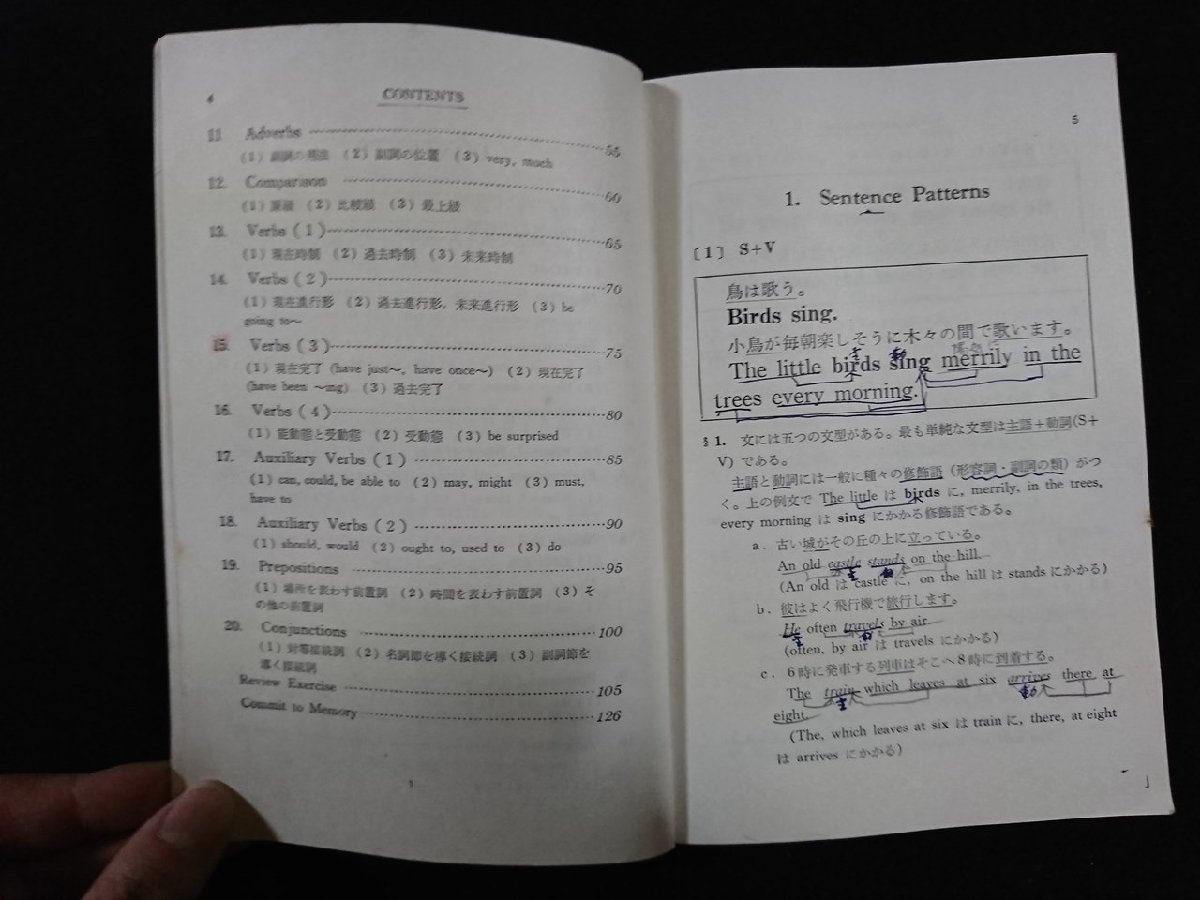 4
CONTENTS
11. Adverbs 55
(1) 副詞の用法 (2) 副詞の位置 (3) very, much
12. Comparison 60
(1) 原級 (2) 比較級 (3) 最上級
13. Verbs (1) 65
(1) 現在時制 (2) 過去時制 (3) 未来時制
14. Verbs (2) 70
(1) 現在進行形 (2) 過去進行形, 未来進行形 (3) be
going to~
15. Verbs (3) 75
(1) 現在完了 (have just~, have once~) (2) 現在完了
(have been ~ing) (3) 過去完了
16. Verbs (4) 80
(1) 能動態と受動態 (2) 受動態 (3) be surprised
17. Auxiliary Verbs (1) 85
(1) can, could, be able to (2) may, might (3) must,
have to
18. Auxiliary Verbs (2) 90
(1) should, would (2) ought to, used to (3) do
19. Prepositions 95
(1) 場所を表わす前置詞 (2) 時間を表わす前置詞 (3) そ
の他の前置詞
20. Conjunctions 100
(1) 対等接続詞 (2) 名詞節を導く接続詞 (3) 副詞節を
導く接続詞
Review Exercise 105
Commit to Memory 126
5
1. Sentence Patterns
[1] S+V
鳥は歌う。
Birds sing.
小鳥が毎朝楽しそうに木々の間で歌います。
主 動
The little birds sing merrily in the
trees every morning.
§1. 文には五つの文型がある。最も単純な文型は主語+動詞(S+
V) である。
主語と動詞には一般に種々の修飾語 (形容詞・副詞の類) がつ
く。上の例文で The little は birds に, merrily, in the trees,
every morning は sing にかかる修飾語である。
a. 古い城がその丘の上に立っている。
An old castle stands on the hill.
主 動
(An old は castle に, on the hill は stands にかかる)
b. 彼はよく飛行機で旅行します。
He often travels by air.
主 動
(often, by air は travels にかかる)
c. 6時に発車する列車はそこへ8時に到着する。
The train which leaves at six arrives there at
主 動
eight.
(The, which leaves at six は train に, there, at eight
は arrives にかかる)